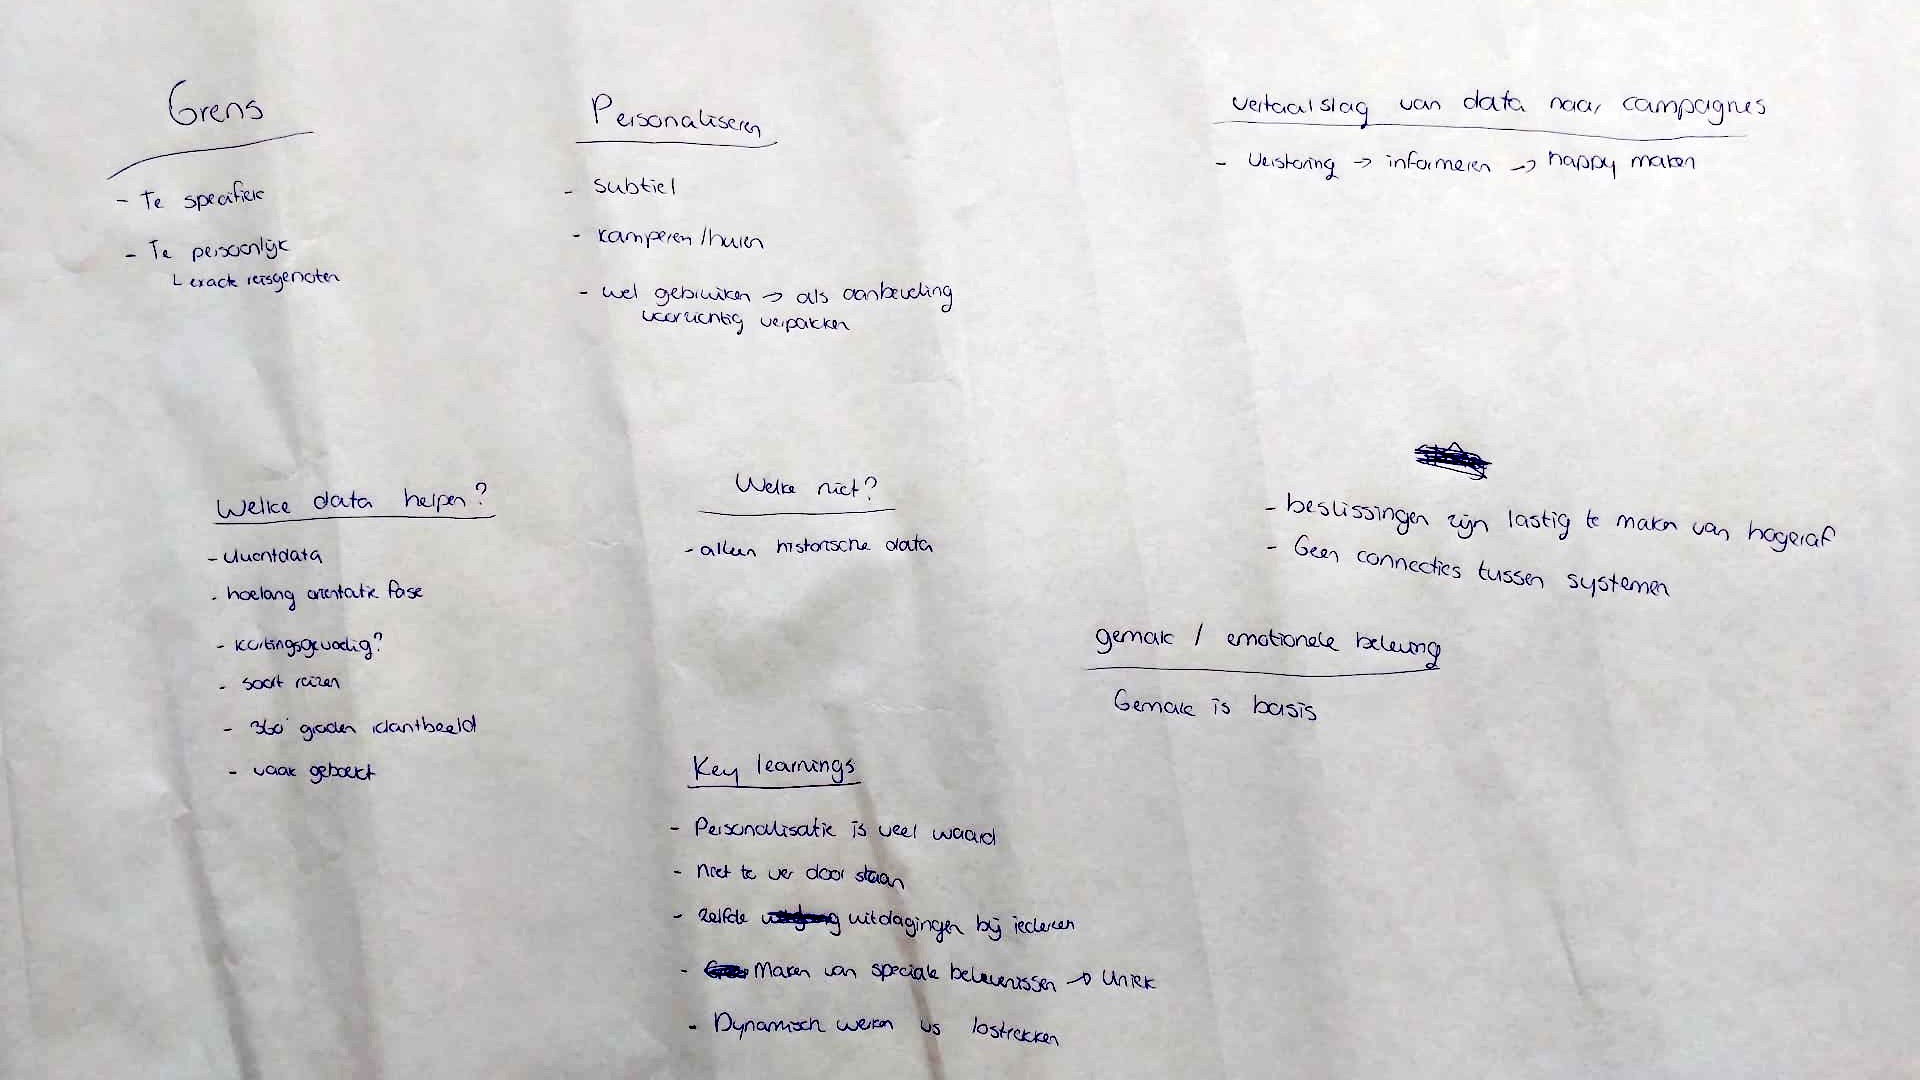 Grens
- Te specifiek
- Te persoonlijk
L exacte reisgenoten
Personaliseren
- subtiel
- kamperen / huren
- wel gebruiken → als aanbeveling
voorzichtig verpakken
vertaalslag van data naar campagnes
- Verstoring → informeren → happy maken
Welke data helpen?
- klantdata
- hoelang orientatie fase
- kortingsgevoelig?
- soort reizen
- 360° graden klantbeeld
- vaak geboekt
Welke niet?
- alleen historische data
- beslissingen zijn lastig te maken van hogeraf
- Geen connecties tussen systemen
gemak / emotionele beleving
Gemak is basis
Key learnings
- Personalisatie is veel waard
- niet te ver door slaan
- zelfde uitdagingen bij iedereen
- Maken van speciale belevenissen → Uniek
- Dynamisch werken vs lostrekken